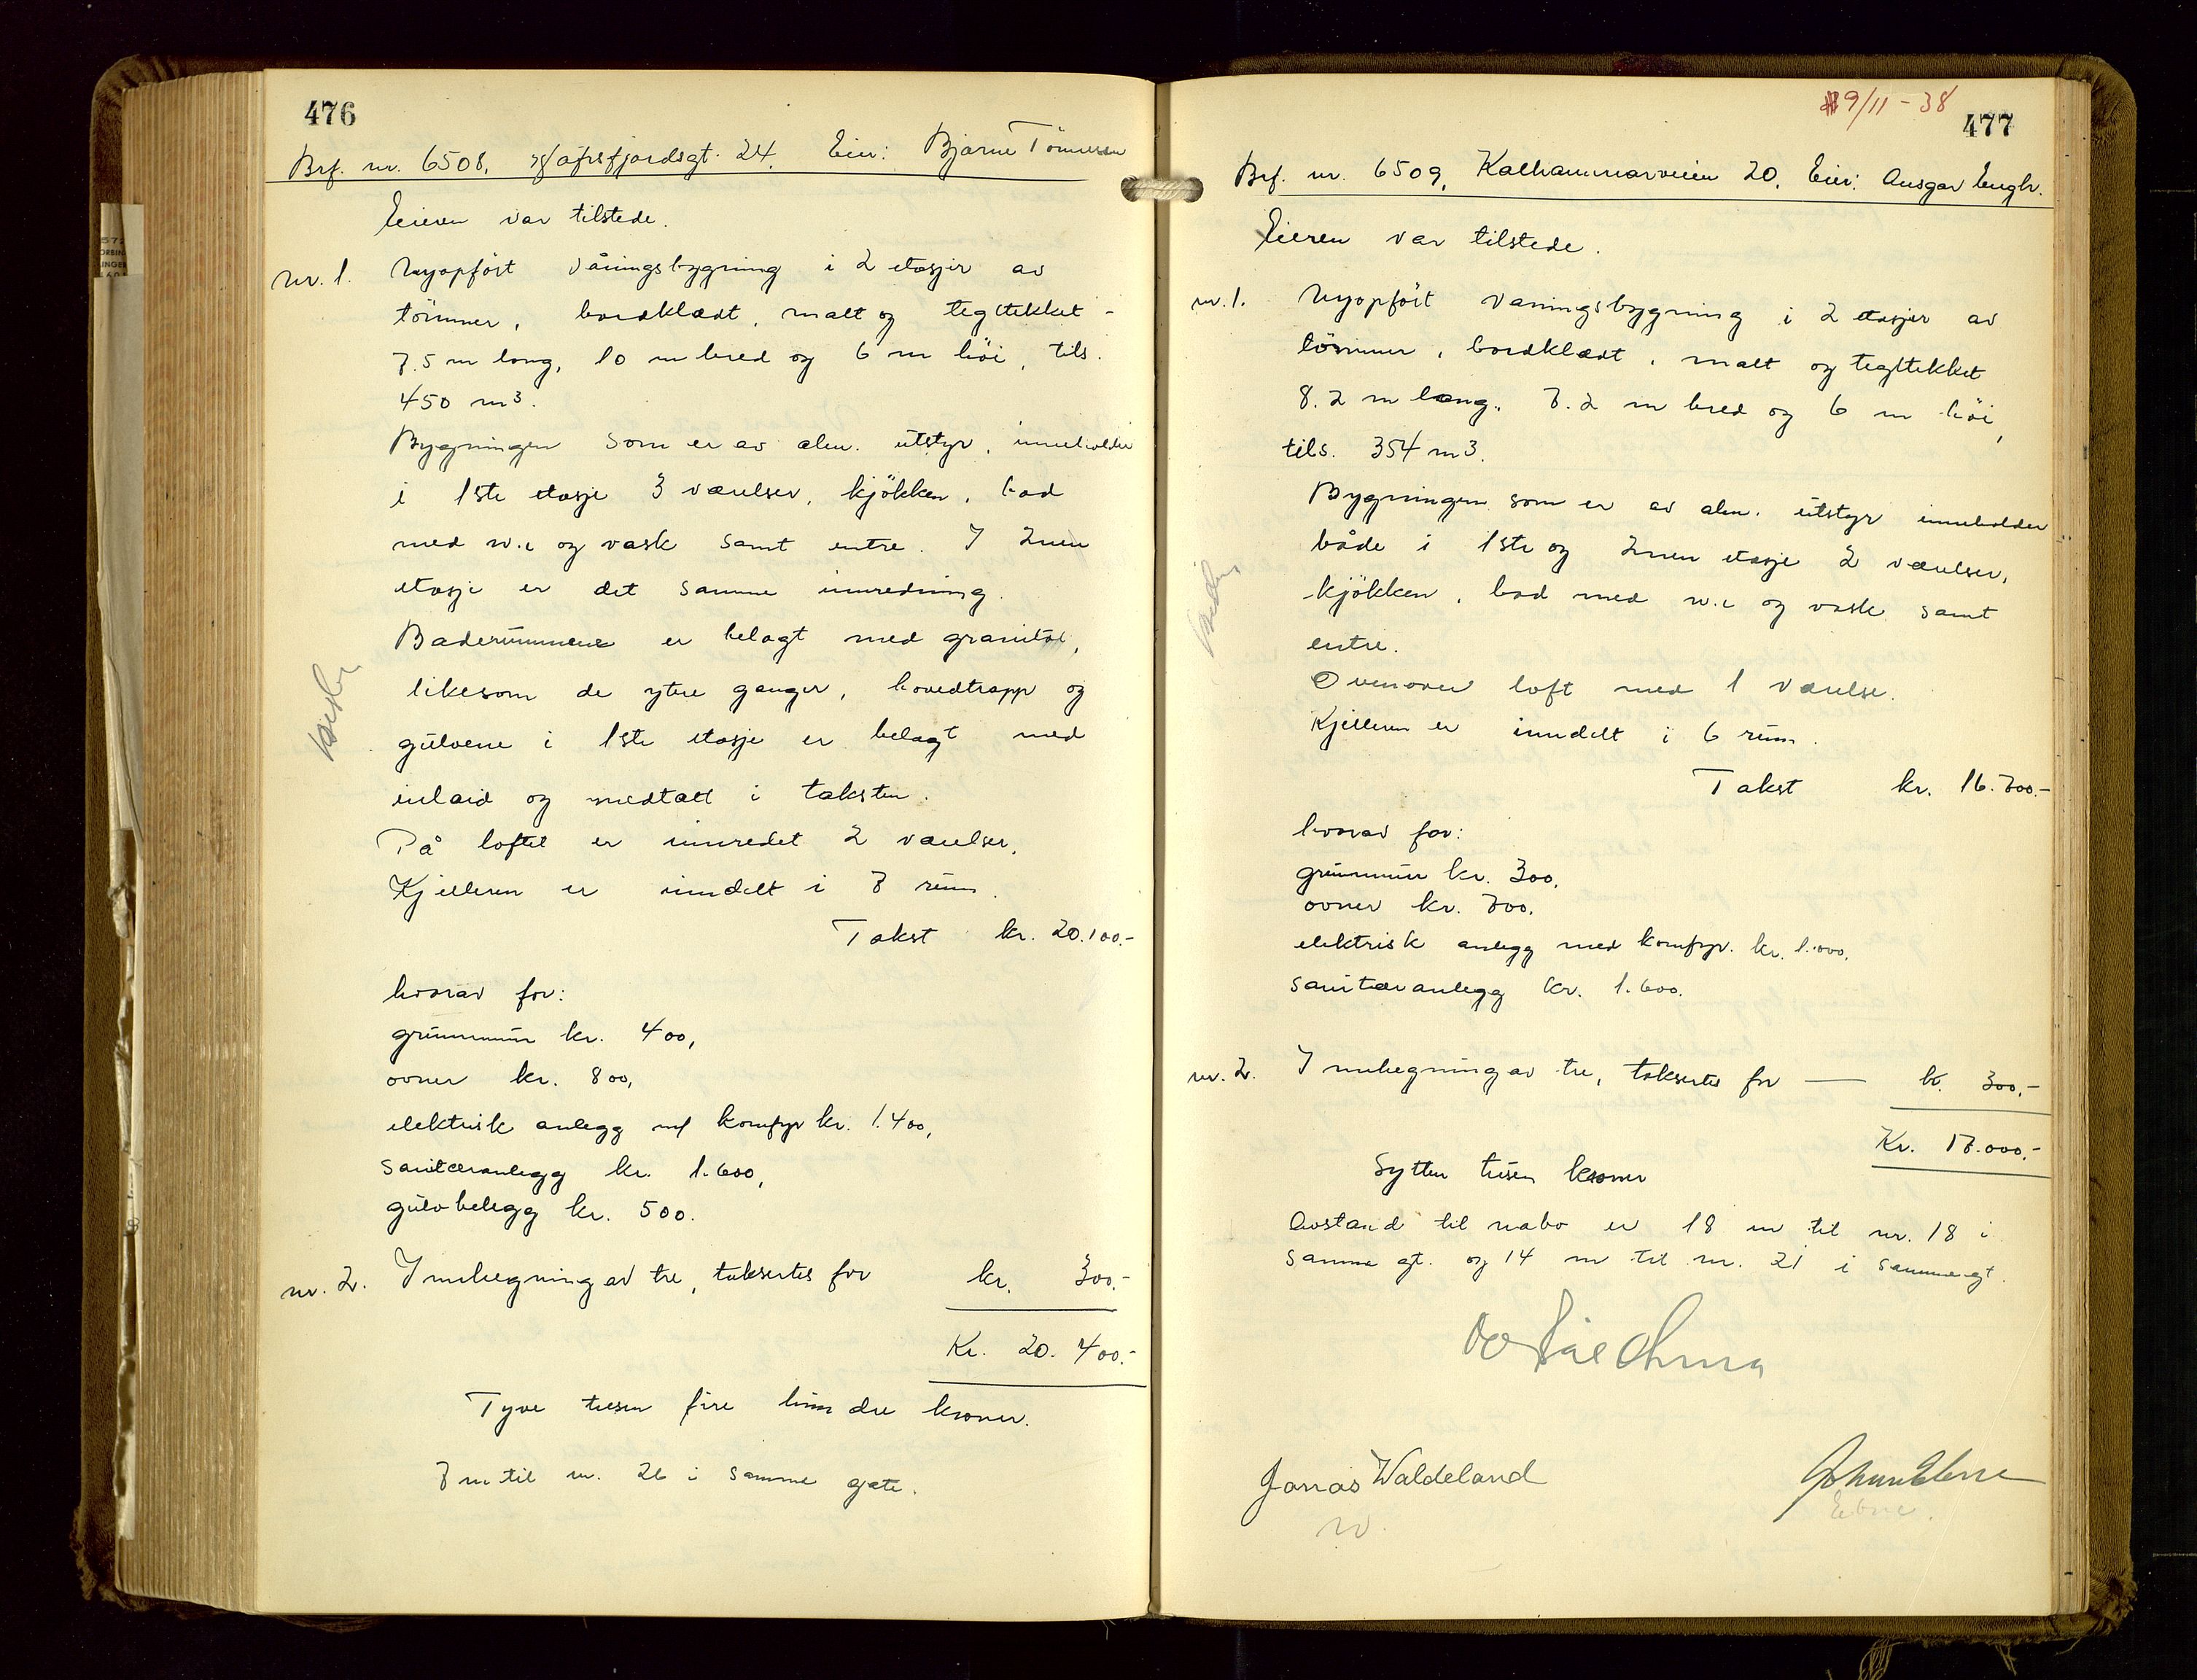 476
Brf. nr. 6508, Hafrsfjordsgt. 24. Eier: Bjarne Tönnesen
Eieren var tilstede.
nr. 1. Nyopfört våningsbygning i 2 etasjer av
tömmer, bordklædt, malt og tegltekket -
7.5 m lang, 10 m bred og 6 m höi, tils.
450 m3.
Bygningen som er av alm. utstyr, inneholder
i 1ste etasje 3 værelser, kjökken, bad
med w.c og vask samt entre. I 2nen
etasje er det samme innredning.
Baderummene er belagt med granitol,
likesom de ytre ganger, hovedtrapp og
gulvene i 1ste etasje er belagt med
inlaid og medtatt i taksten.
På loftet er innredet 2 værelser.
Kjelleren er inndelt i 7 rum.
Takst kr. 20.100.-
hvorav for:
grunnmur kr. 400,
ovner kr. 800,
elektrisk anlegg m/ komfyr kr. 1.400,
sanitæranlegg kr. 1.600,
gulvbelegg kr. 500.
nr. 2. Innhegning av tre, taksertes for kr. 300.-
Kr. 20.400.-
Tyve tusen fire hundre kroner.
7 m til nr. 26 i samme gate.
9/11-38
477
Brf. nr. 6509, Kalhammarveien 20, Eier: Ansgar Engh.
Eieren var tilstede.
nr. 1. Nyopfört våningsbygning i 2 etasjer av
tömmer, bordklædt, malt og tegltekket
8.2 m lang, 7.2 m bred og 6 m höi,
tils. 354 m3.
Bygningen som er av alm. utstyr inneholder
både i 1ste og 2nen etasje 2 værelser,
kjökken, bad med w.c og vask samt
entre.
Ovenover loft med 1 værelse.
Kjelleren er inndelt i 6 rum.
Takst kr. 16.700.-
hvorav for:
grunnmur kr. 300,
ovner kr. 700,
elektrisk anlegg med komfyr. kr. 1.000,
sanitæranlegg kr. 1.600.
nr. 2. Innhegning av tre, taksertes for — kr. 300.-
Kr. 17.000.-
Sytten tusen kroner
Avstand til nabo er 18 m til nr. 18 i
samme gt. og 14 m til nr. 21 i samme gt.
Jonas Waldeland
W.